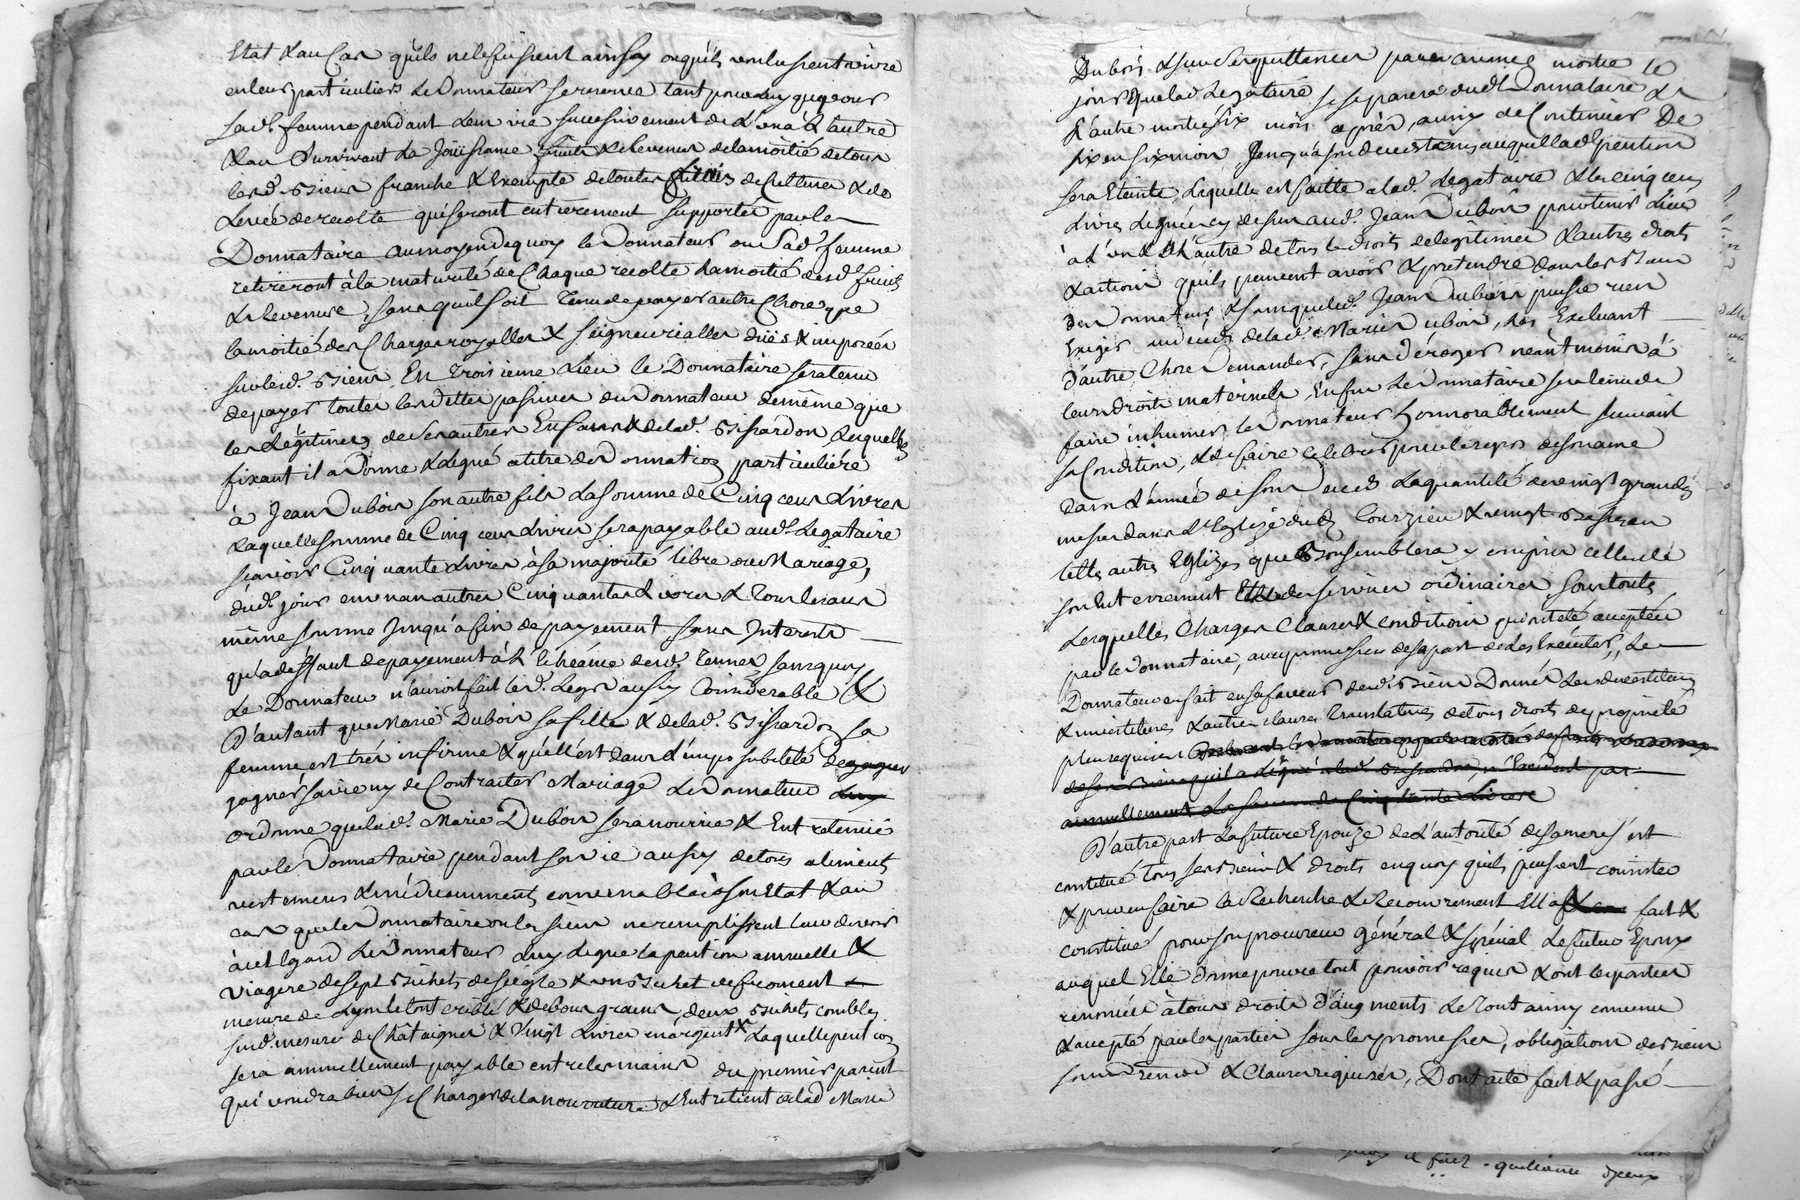 Etat & au Cas qu'ils ne le fussient ainsy ou qu'ils voulussient vivre
en leurs particuliers Le Donnateur se reserve tant pour luy que pour
sad. femme pendant Leur vie successivement de L'un à L'autre
& au Survivant La Joüissance fruits & Revenus de la moitié de tous
lesd. Biens franche & Exempte de toutes de Culture & de
Levée de recolte qui seront entierement supportés par le
Donnataire au moyen de quoy le Donnateur ou Sad. femme
retireront à la maturité de Chaque recolte la moitié desd. fruits
& Revenus, sans qu'il soit Tenu de payer autre Chose que
la moitié des Charges royalles & seigneurialles düës & imposées
sur lesd. Biens, En Troisieme Lieu le Donnataire sera tenu
de payer toutes les dettes passives du Donnateur de même que
les Légitimes de ses autres Enfans & de lad. Bissardon Lesquelles
fixant il a Donné & Légué à titre de Donnation particuliére
à Jean Dubois son autre fils La Somme de Cinq cens Livres
Laquelle somme de Cinq cens Livres sera payable aud. Legataire
sçavoir Cinquante Livres à sa majorité libre ou Mariage,
dud. jour en un an autres Cinquante Livres & Tous les ans
même somme Jusqu'à fin de payement sans Interests
qu'à deffaut de payement à L'Echéance desd. Termes sans quoy
Le Donnateur n'auroit fait led. Legs aussy Considerable &
D'autant que Marie Dubois sa fille & de lad. Bissardon sa
femme est trés infirme & qu'elle est dans L'impossibilité de gagner
gagner sa vie ny de Contracter Mariage Le Donnateur
ordonne que lad. Marie Dubois sera nourrie & Entretenüe
par le Donnataire pendant sa vie aussy de tous aliments
vestemens & médicamments convenables à son Etat & au
cas que le Donnataire ou les siens ne remplissent leur devoir
à cet Egard Le Donnateur Luy Legue la pention annuelle &
Viagere de sept Bichets de seigle & un Bichet de froment
mesure de Lyon le tout criblé & de bons grains, deux Bichets combles
sud. mesure de Chataignes & Vingt Livres en argent Laquelle pention
sera annuellement payable entre les mains du premier parent
qui voudra bien se Charger de la nourriture & Entretient de lad. Marie
Dubois & sur ses quittances par avance moitié le
jour que lad. Legataire se separera dud. Donnataire &
L'autre moitié six mois aprés, ainsy de Continuer De
six en six mois Jusqu'à son deceds tems auquel lad. pention
sera Eteinte, Laquelle est faitte a lad. Legataire & les cinq cens
Livres Leguée cy dessus aud. Jean Dubois pour tenir Lieu
à L'un & L'autre de tous les droits de legitime & autres droits
& actions qu'ils peuvent avoir & pretendre dans les Biens
du Donnateur & sans que led. Jean Dubois puisse rien
Exiger au deceds de lad. Marie Dubois, Les Excluant
d'autre Chose Demander, sans déroger neant moins à
leurs droits maternels, Enfin Le Donnataire sera tenu de
faire inhumer le Donnateur honnorablement suivant
sa Condition, & de faire celebrer pour le repos de son ame
Dans L'année de son Deceds La quantité de vingt grandes
messes dans L'Eglize dud. Courzieu & vingt Basses en
telles autres Eglizes que Bon semblera y compris celles de
son Enterrement & services ordinaires, sous toutes
Lesquelles Charges Clauses & conditions qui ont eté acceptées
par le Donnataire, avec promesse de sa part de les Exécuter, Le
Donnateur en fait en sa faveur desd. Biens Donnés Les devestitures
& investitures & autres clauses Translatives de tous droits de proprieté
plus requises
de ses Biens qu'il a Légué a lad. Bissardon, n'Excedent pas
annuellement La somme de Cinquante Livres
D'autre part La future Epouze de L'autorité de sa mere s'est
constitué tous ses Biens & droits en quoy qu'ils puissent consister
& pour en faire la Recherche & Recouvrement Ella fait &
constitué pour son procureur général & spécial Le futur Epoux
auquel Elle donne pour ce tout pouvoir requis & ont les parties
renoncée à tous droits d'augments Le Tout ainsy convenu
& accepté par les parties sous les promesses, obligations des biens
soumissions & Clauses requises, Dont acte fait & passé